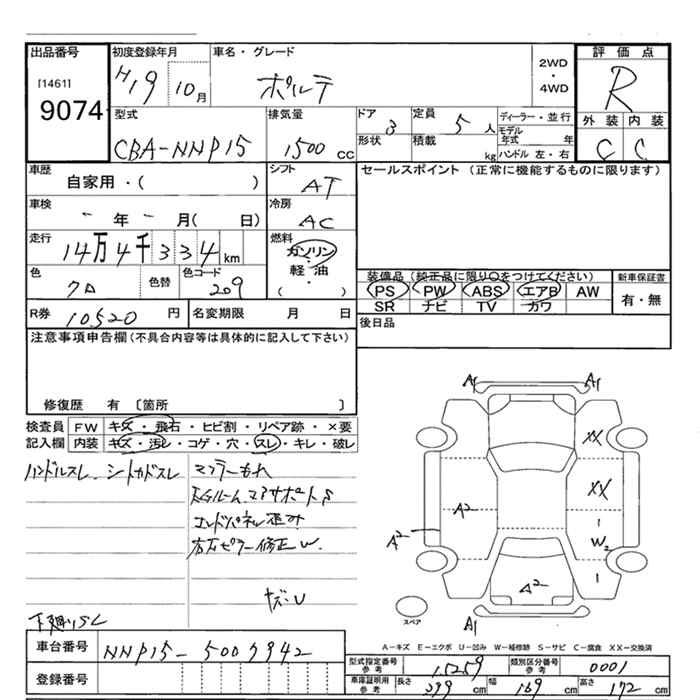 出品番号 初度登録年月 車名・グレード 評価点
[1461] H19 10月 ポルテ 2WD・4WD R
9074
型式 排気量 ドア 3 定員 5人 ディーラー・並行 外装 内装
CBA-NNP15 1500 CC 形状 積載 kg モデル年式 年 C C
ハンドル 左・右
車歴 シフト セールスポイント (正常に機能するものに限ります)
自家用・( ) AT
車検 冷房
- 年 - 月( 日) AC
走行 燃料
14万4千334km ガソリン・軽油・( )
色 色替 色コード 装備品 (純正品に限り○をつけてください) 新車保証書
クロ 209 PS PW ABS エアB AW 有・無
SR ナビ TV カワ
R券 10520円 名変期限 月 日 後日品
注意事項申告欄(不具合内容等は具体的に記入して下さい)
修復歴 有 〔箇所 〕
検査員 FW キズ・飛石・ヒビ割・リペア跡・×要
記入欄 内装 キズ・汚レ・コゲ・穴・スレ・キレ・破レ
ハンドルスレ シートカドスレ マフラーもれ
エンドパネル歪み
右Cピラー修正W
キズ・U
下廻りSC
A1 A1
XX
XX
A2 A2
W2
A2
A1
スペア
A-キズ E-エクボ U-凹み W-補修跡 S-サビ C-腐食 XX-交換済
車台番号 NNP15-5007942
登録番号
型式指定番号 参考 15259 類別区分番号 参考 0001
車庫証明用 参考 長さ 399 cm 幅 169 cm 高さ 172 cm